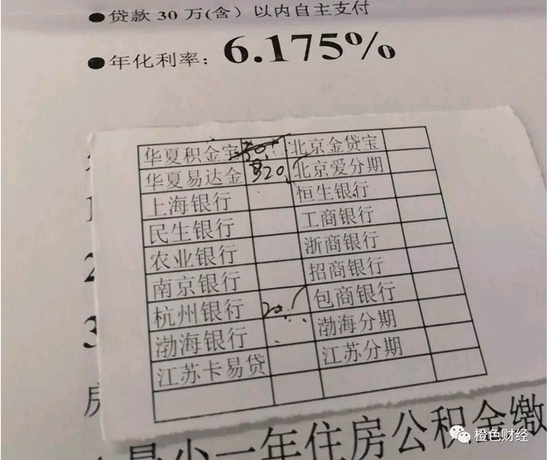 ●贷款 30 万(含）以内自主支付
●年化利率：6.175%
华夏积金宝 30. 北京金贷宝
华夏易达金 320. 北京爱分期
上海银行 恒生银行
民生银行 工商银行
农业银行 浙商银行
南京银行 招商银行
杭州银行 20. 包商银行
渤海银行 渤海分期
江苏卡易贷 江苏分期
房
最少一年住房公积金缴
橙色财经